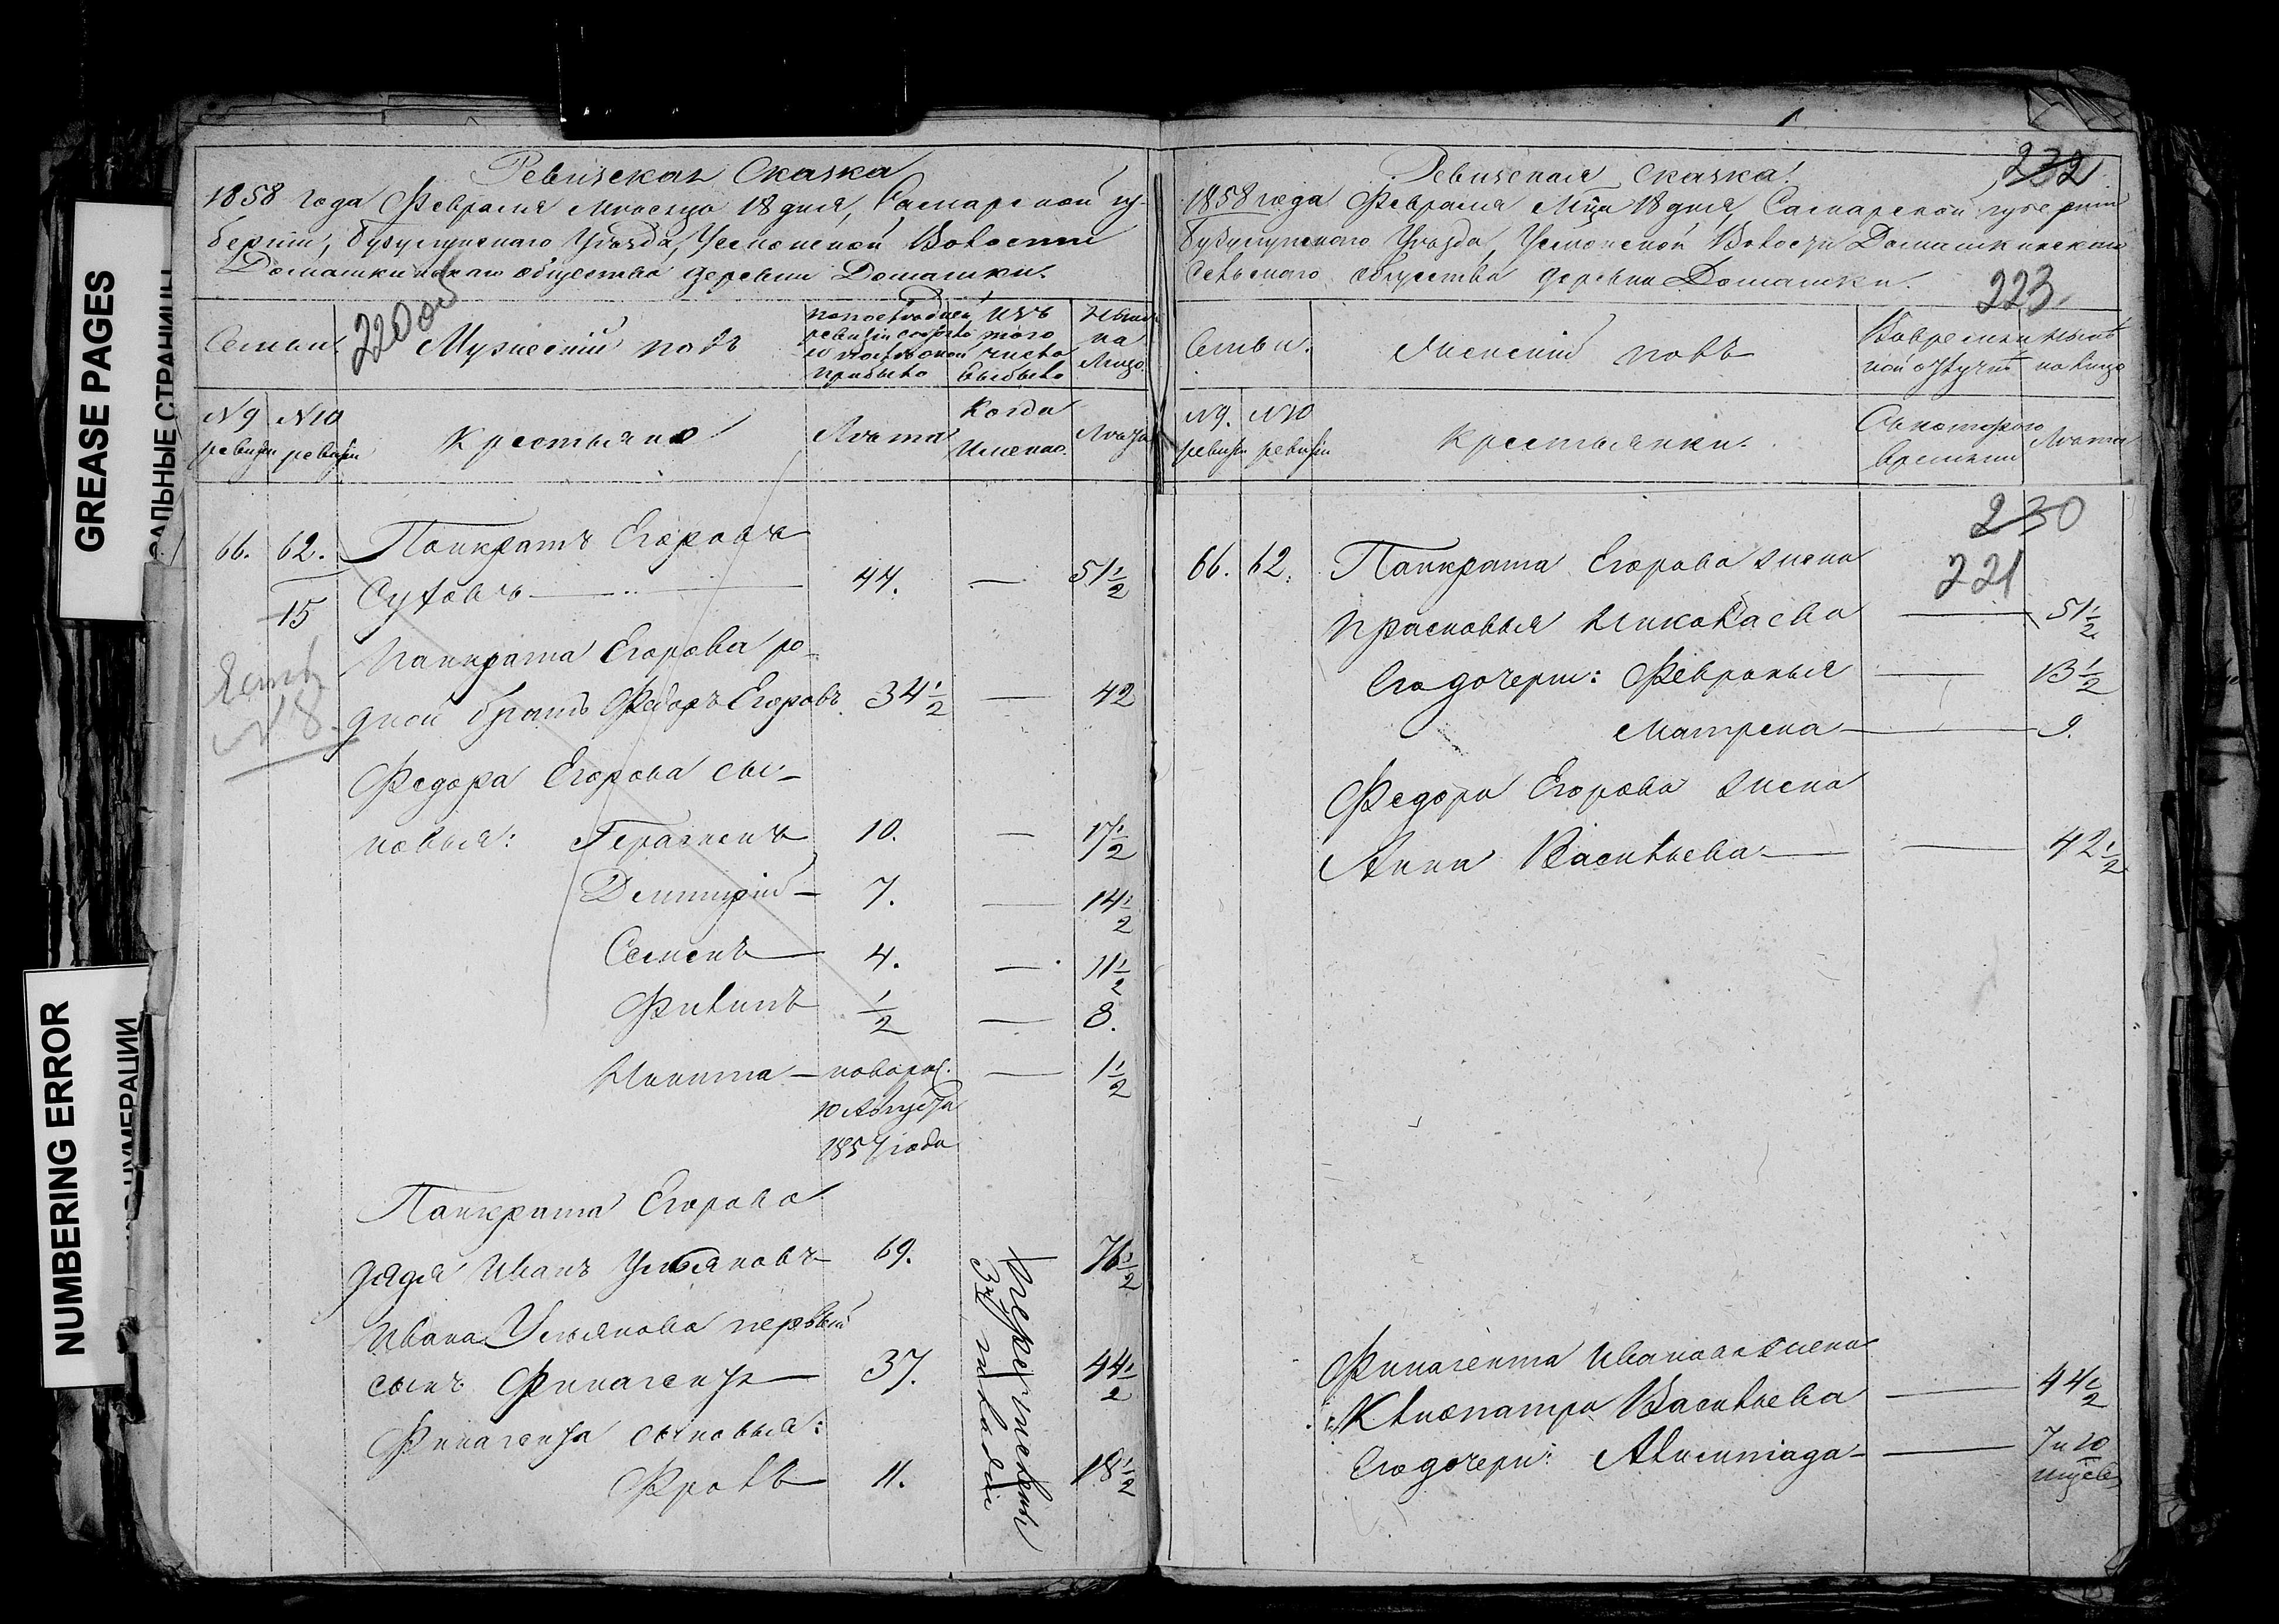 GREASE PAGES
NUMBERING ERROR
Ревизская Сказка
1858 года Февраля Мѣсяца 18 дня, Самарской гу-
берніи, бузулукскаго Уѣзда, Усманской Волости
Домашкинскаго общества деревни Домашки.
220 об
Семьи.
Мужескій полъ
по последней ревизіи состояло и после оной прибыло
Изъ того числа выбыло
Ныне на Лицо.
№ 9 ревизіи
№ 10 ревизіи
Крестьяне
Лѣта
Когда Именно.
Лѣта
66.
62.
15
Есть
№ 8.
Панкратъ Егоровъ
Сутовъ — 44. — 51 1/2
Панкрата Егорова ро-
дной братъ Федоръ Егоровъ 34 1/2 — 42
Федора Егорова сы-
новья: Герасимъ 10. — 17 1/2
Дмитрій — 7. — 14 1/2
Семенъ — 4. — 11 1/2
Филипъ 1/2 — 8.
Никита — новорож. — 1 1/2
10 Августа
1857 года
Панкрата Егорова
дядя Иванъ Ульяновъ — 69. 76 1/2
Ивана Ульянова первый
сынъ Финагентъ — 37. 44 1/2
Финагента сыновья:
Фролъ 11. 18 1/2
232
Ревизская сказка.
1858 года Февраля Мца 18 дня, Самарской губерніи
бузулукскаго Уѣзда, Усманской Волости Домашкинскаго
сельскаго общества деревни Домашки.
223.
Семьи.
Женскій полъ
Во временной отлучкѣ
ныне на лицо
№ 9. ревизіи
№ 10 ревизіи
Крестьянки.
Съ котораго времени
Лѣта
230
221
66. 62. Панкрата Егорова жена
Прасковья Николаева — 51 1/2
Его дочери: Февронья — 13 1/2
Матрена — 9.
Федора Егорова жена
Анна Васильева — 42 1/2
Финагента Иванова жена
Клиопатра Васильева — 44 1/2
Его дочери: — 7 и 10